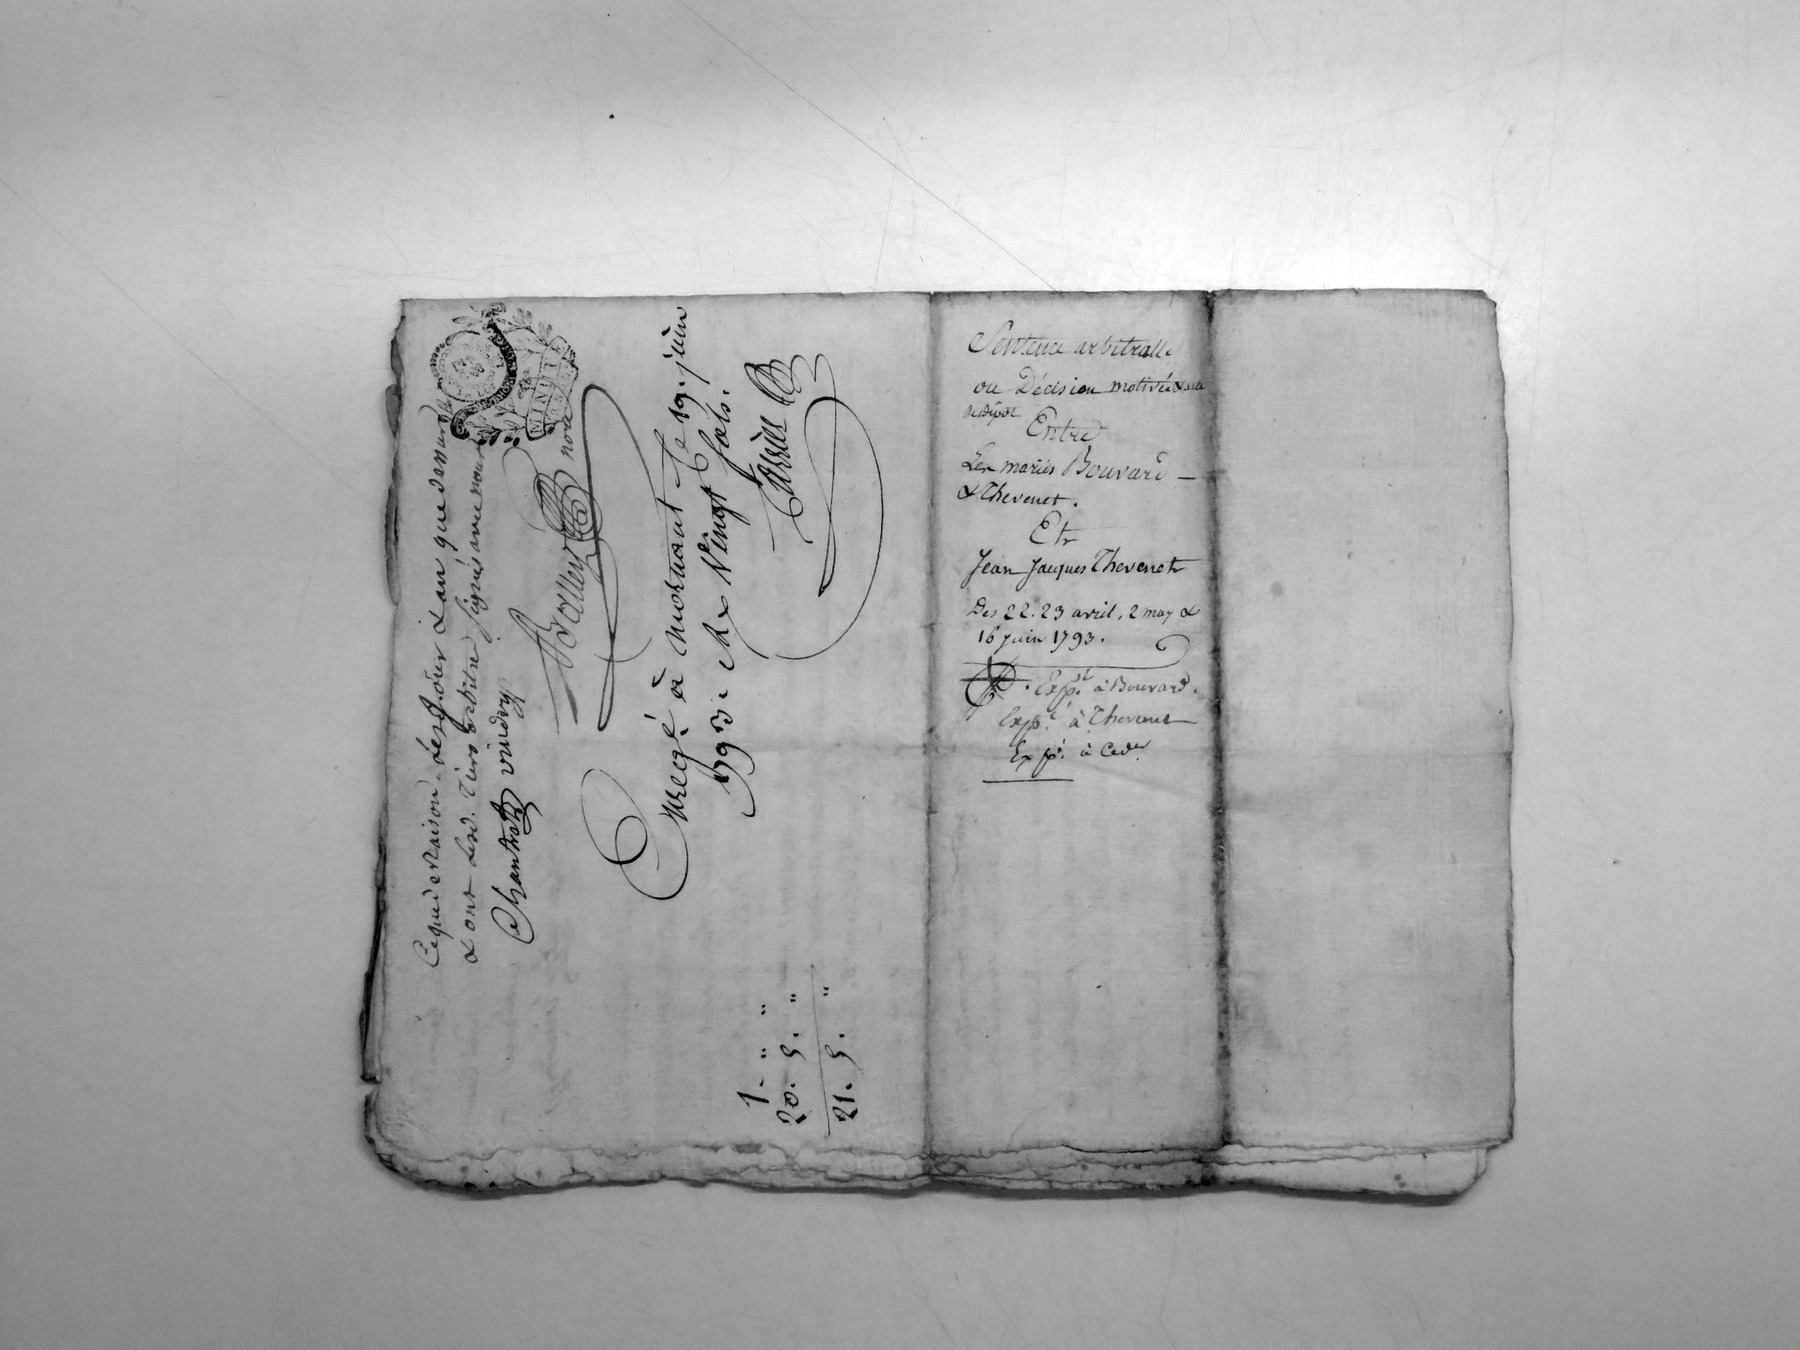 Ce que de Raison. les jour & an que devant
& ont lesd. Tiers arbitre Signés avec nous
Chantrot vindry
nore
MINUTE
Enregé à mornant Le 19. juin
1793. Rx Vingt sols.
1. " "
20. 5. "
21. 5. "
Sentence arbitralle
ou Décision motivée & acte
de dépot
Entre
Les mariés Bouvard
& Thevenet.
Et
Jean Jacques Thevenet
Des 22. 23 avril, 2 may &
16 juin 1793.
Expé. à Bouvard.
Expé. à Thevenet
Expé. à